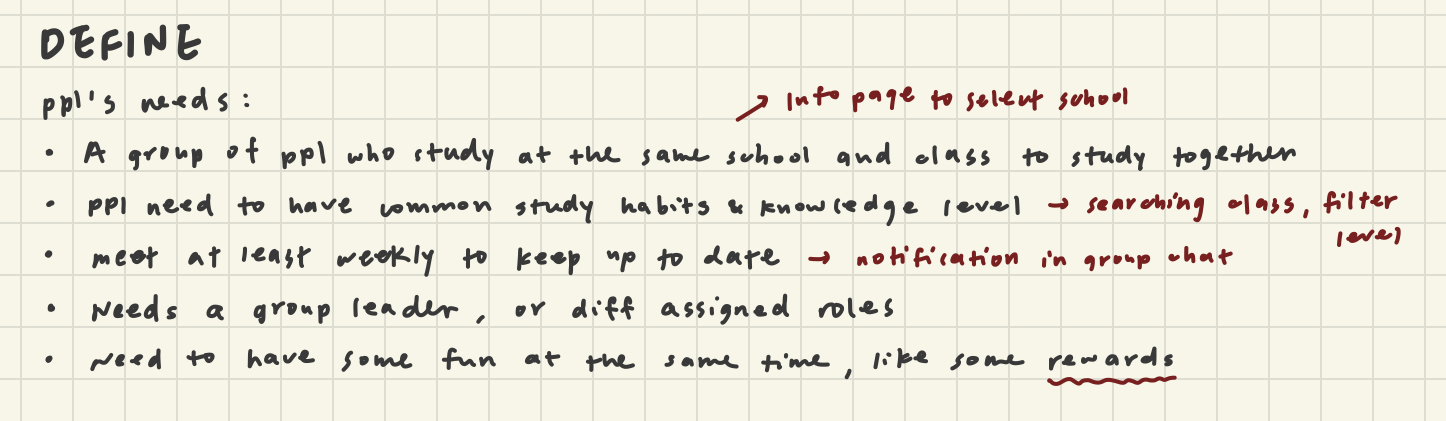 DEFINE
ppl's needs:
→ Info page to select school
• A group of ppl who study at the same school and class to study together
• ppl need to have common study habits & knowledge level → searching class, filter
level
• meet at least weekly to keep up to date → notification in group chat
• Needs a group leader, or diff assigned roles
• Need to have some fun at the same time, like some rewards